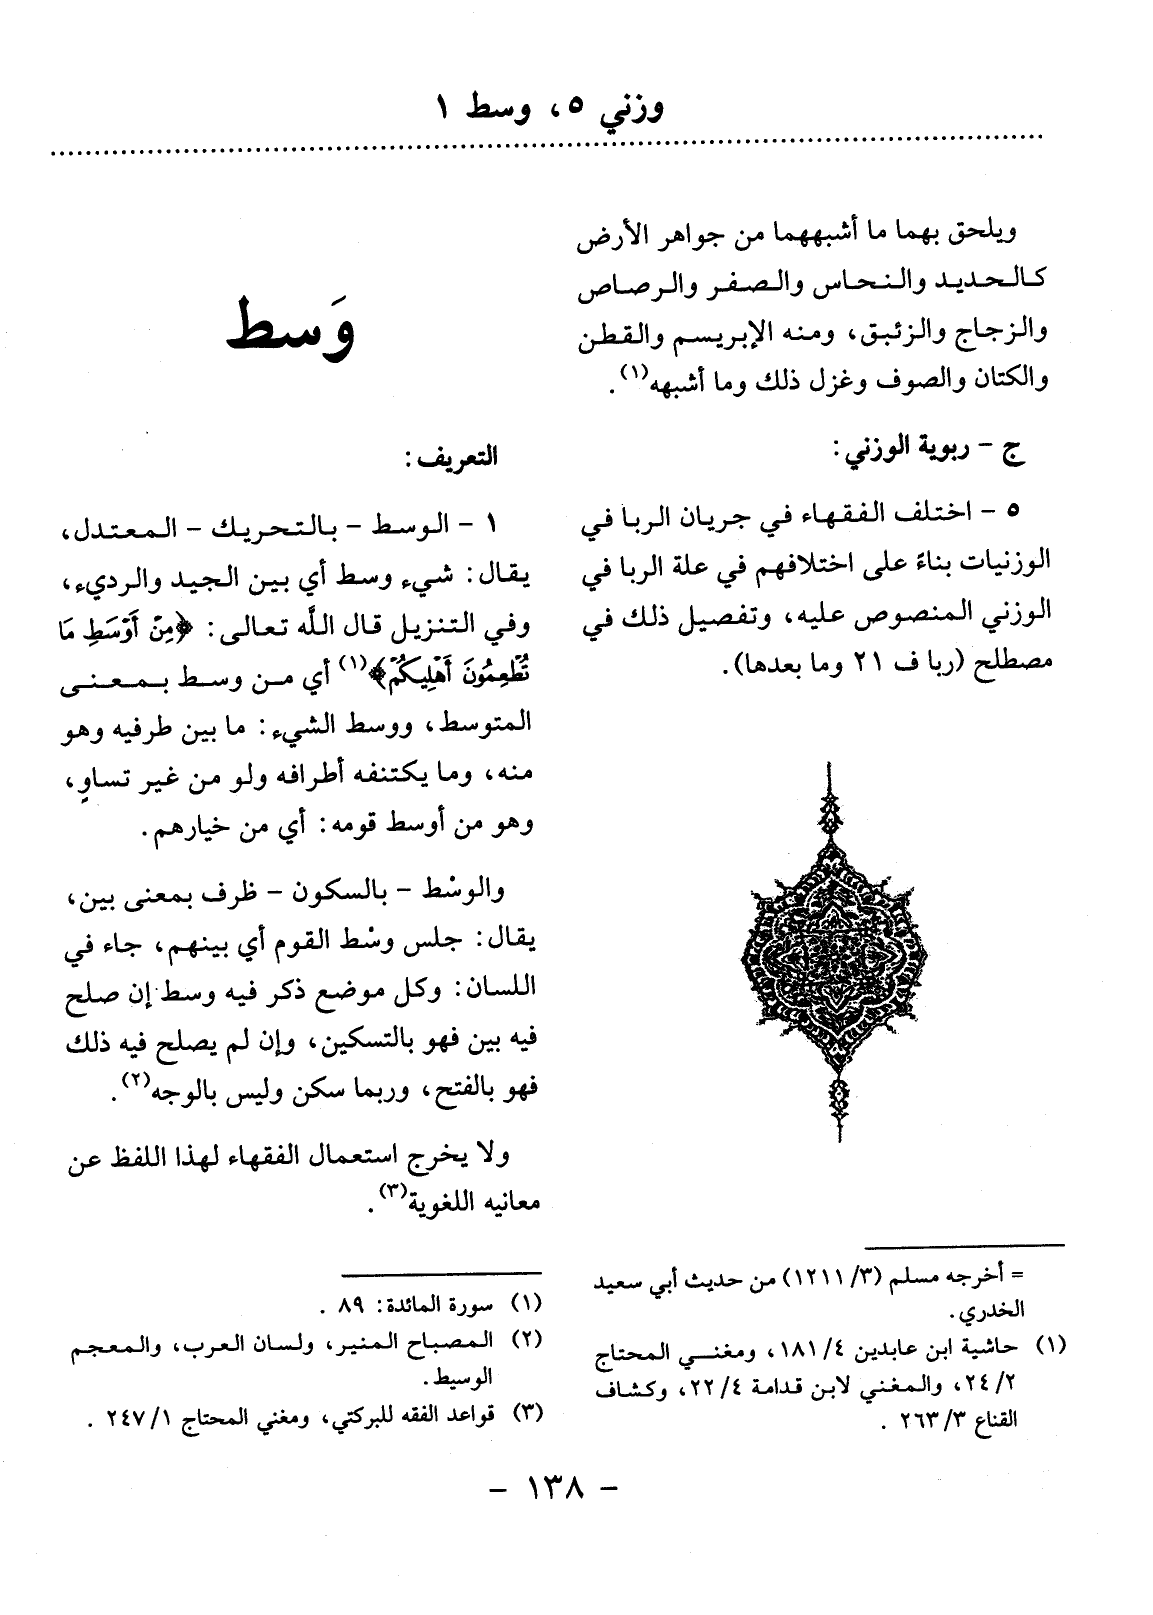 وزني ٥، وسط ١
ويلحق بهما ما أشبههما من جواهر الأرض
كالحديد والنحاس والصفر والرصاص
والزجاج والزئبق، ومنه الإبريسم والقطن
والكتان والصوف وغزل ذلك وما أشبهه(١).
ج - ربوية الوزني:
٥ - اختلف الفقهاء في جريان الربا في
الوزنيات بناءً على اختلافهم في علة الربا في
الوزني المنصوص عليه، وتفصيل ذلك في
مصطلح (ربا ف ٢١ وما بعدها).
= أخرجه مسلم (٣/ ١٢١١) من حديث أبي سعيد
الخدري.
(١) حاشية ابن عابدين ٤/ ١٨١، ومغني المحتاج
٢/ ٢٤، والمغني لابن قدامة ٤/ ٢٢، وكشاف
القناع ٣/ ٢٦٣ .
وَسط
التعريف:
١ - الوسط - بالتحريك - المعتدل،
يقال: شيء وسط أي بين الجيد والرديء،
وفي التنزيل قال اللَّه تعالى: ﴿مِنْ أَوْسَطِ مَا
تُطْعِمُونَ أَهْلِيكُمْ﴾(١) أي من وسط بمعنى
المتوسط، ووسط الشيء: ما بين طرفيه وهو
منه، وما يكتنفه أطرافه ولو من غير تساوٍ،
وهو من أوسط قومه: أي من خيارهم.
والوسْط - بالسكون - ظرف بمعنى بين،
يقال: جلس وسْط القوم أي بينهم، جاء في
اللسان: وكل موضع ذكر فيه وسط إن صلح
فيه بين فهو بالتسكين، وإن لم يصلح فيه ذلك
فهو بالفتح، وربما سكن وليس بالوجه(٢).
ولا يخرج استعمال الفقهاء لهذا اللفظ عن
معانيه اللغوية(٣).
(١) سورة المائدة: ٨٩ .
(٢) المصباح المنير، ولسان العرب، والمعجم
الوسيط.
(٣) قواعد الفقه للبركتي، ومغني المحتاج ١/ ٢٤٧ .
- ١٣٨ -